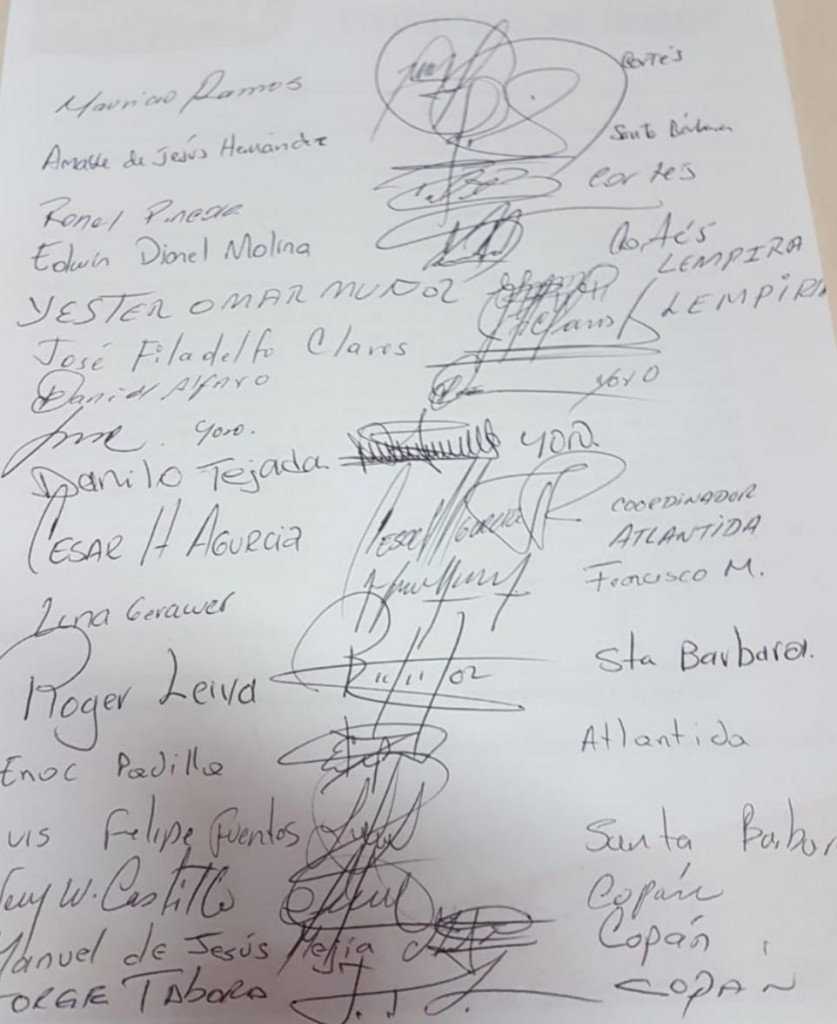 Mauricio Ramos Cortés
Amable de Jesús Hernández Santa Bárbara
Ronel Pineda Cortes
Edwin Dionel Molina Cortés
YESTER OMAR MUÑOZ LEMPIRA
José Filadelfo Clares LEMPIRA
Daniel Alfaro yoro
yoro.
Danilo Tejada yoro.
CESAR H AGURCIA COORDINADOR
ATLANTIDA
Francisco M.
Roger Leiva R 11/11/02 Sta Barbara.
Enoc Padilla Atlantida
uis Felipe Fuentes Santa Barbar
W. Castillo Copán
Manuel de Jesús Mejía Copán
ORGE TABORA COPÁN